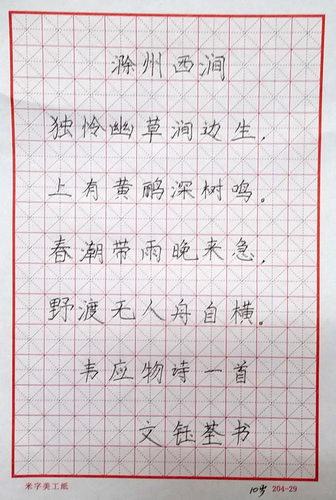 滁州西涧
独怜幽草涧边生,
上有黄鹂深树鸣。
春潮带雨晚来急,
野渡无人舟自横。
韦应物诗一首
文钰荃书
米字美工纸
10岁 204-29